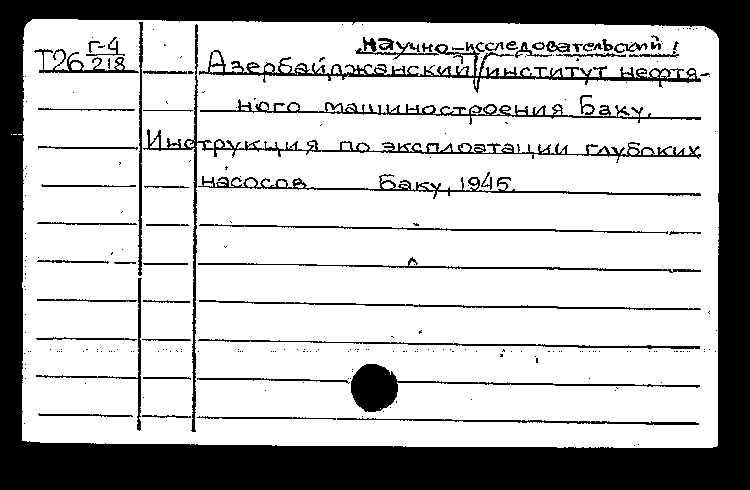 научно-исследовательский
Т26 Г-4/218 Азербайджанский институт нефтя-
ного машиностроения Баку.
Инструкция по эксплоатации глубоких
насосов Баку, 1945.